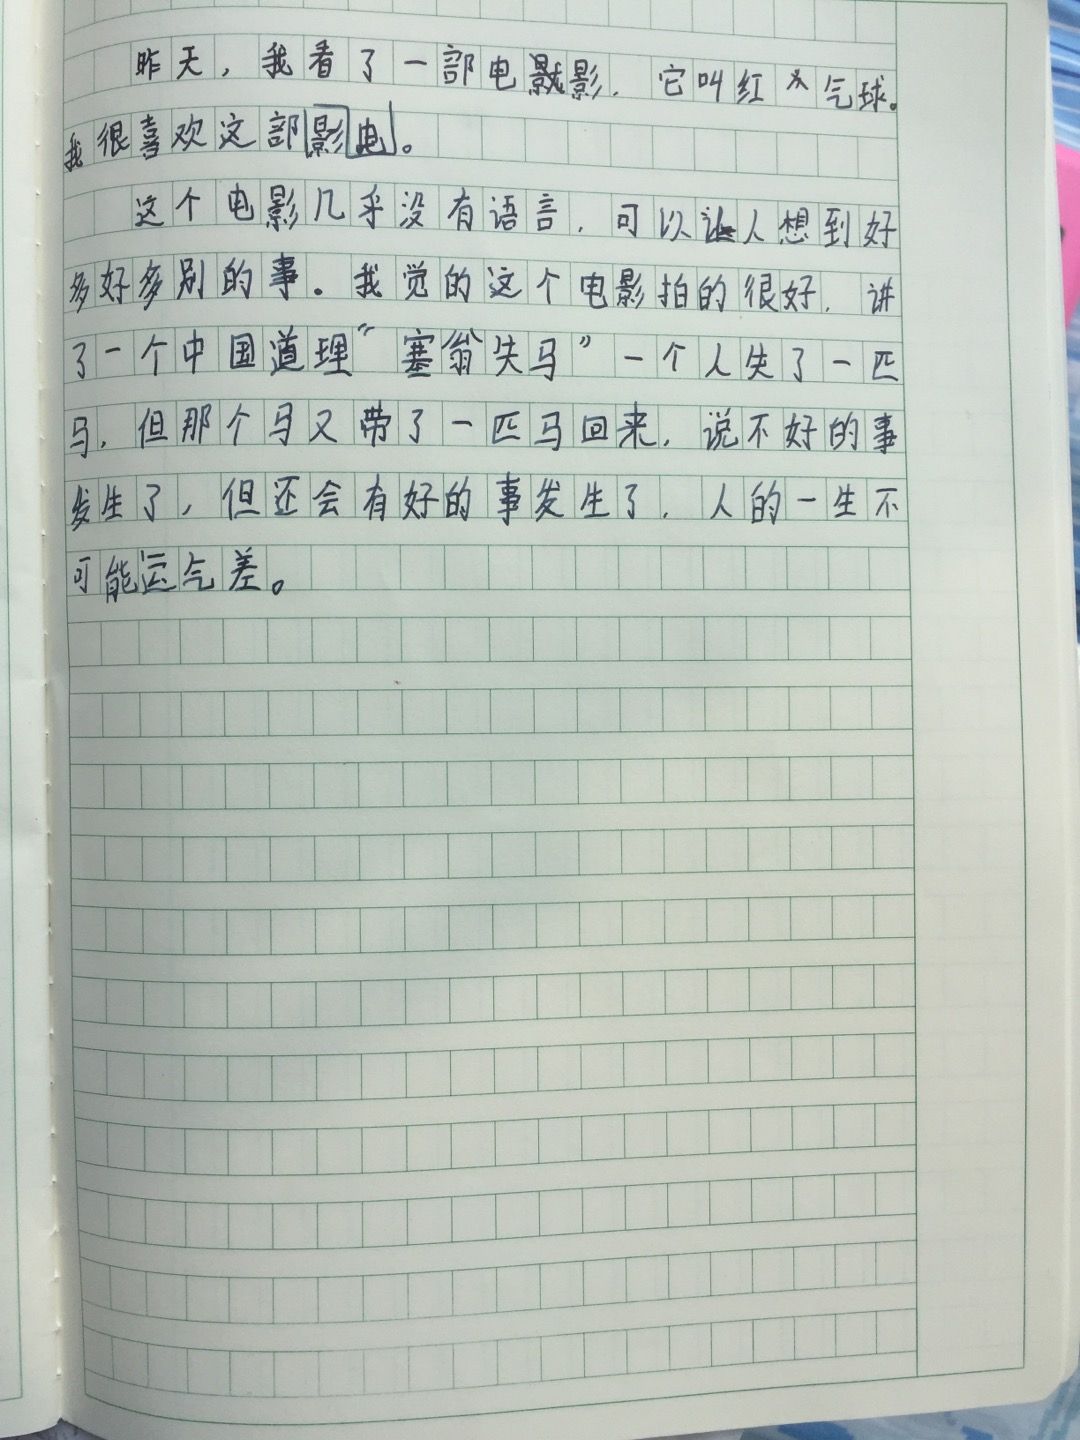 昨天，我看了一部电影，它叫红气球。
我很喜欢这部影电。
这个电影几乎没有语言，可以让人想到好
多好多别的事。我觉的这个电影拍的很好，讲
了一个中国道理“塞翁失马”一个人失了一匹
马，但那个马又带了一匹马回来，说不好的事
发生了，但还会有好的事发生了，人的一生不
可能运气差。